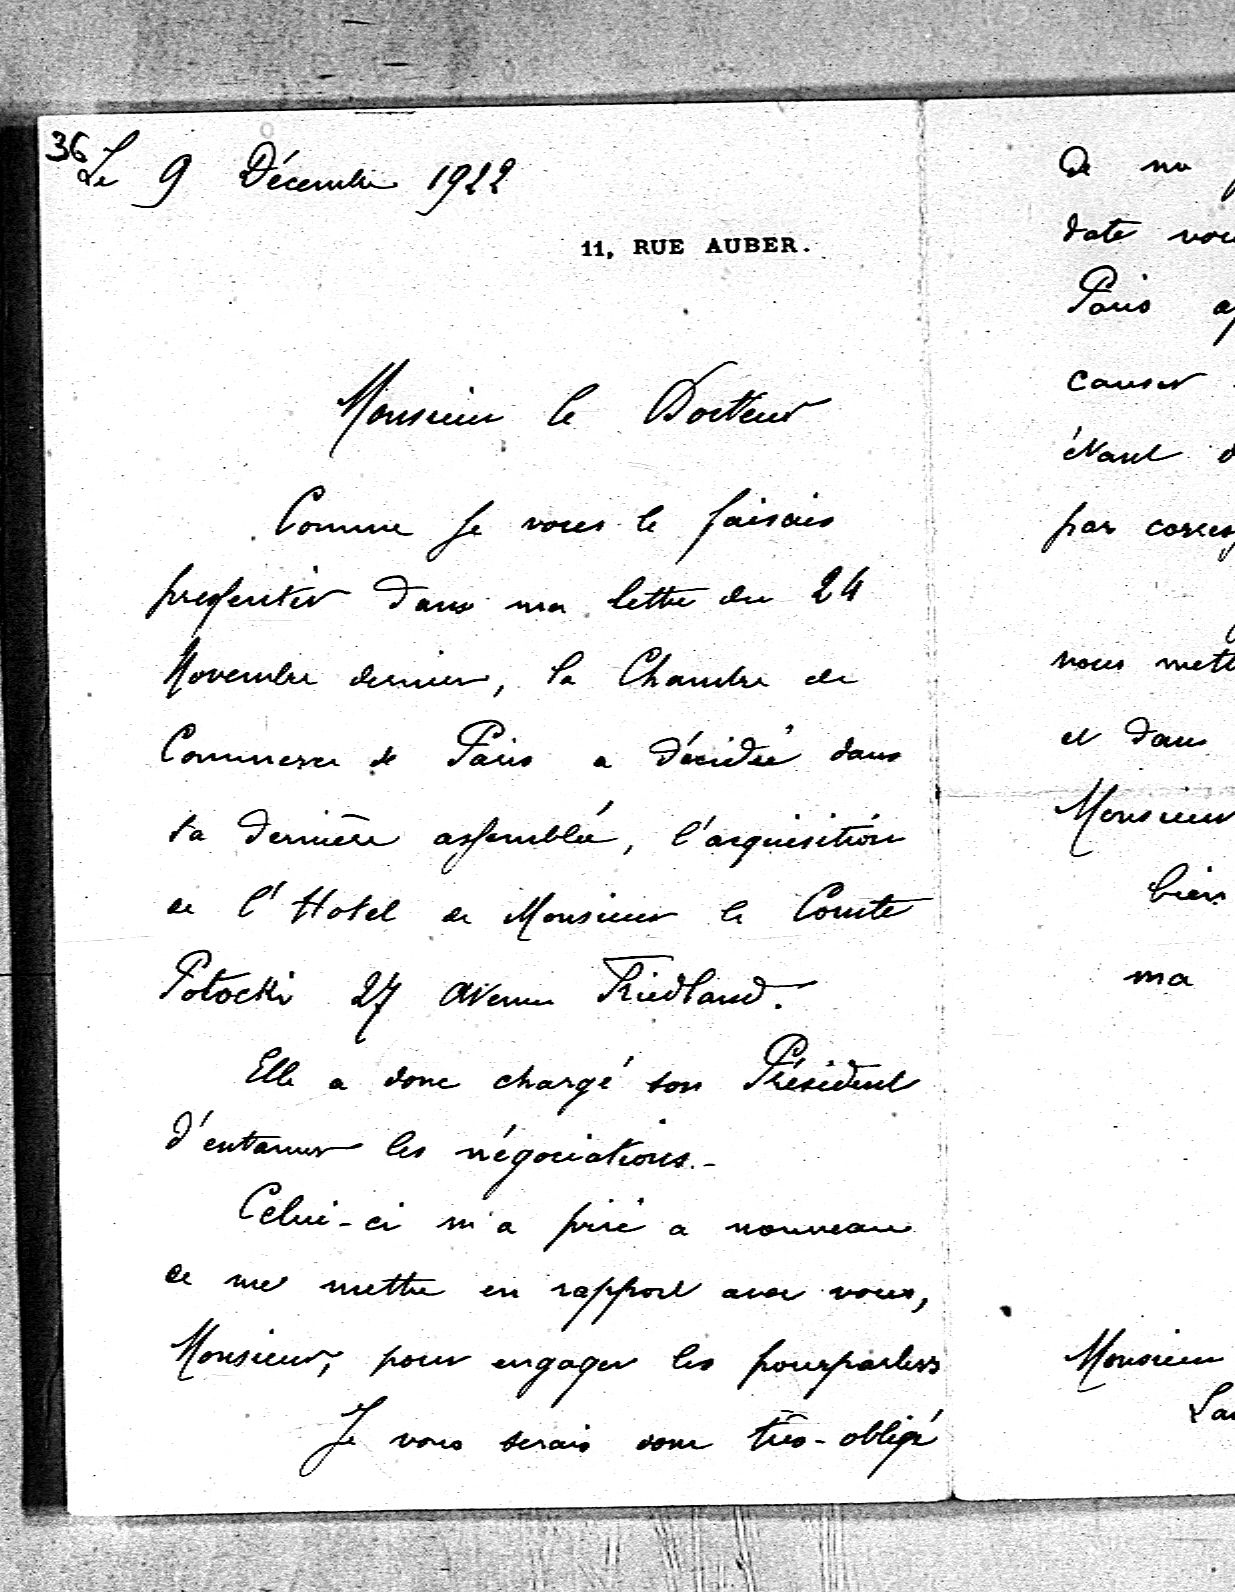 36
Le 9 Décembre 1922
11, RUE AUBER.
Monsieur le Docteur
Comme je vous le faisais
pressentir dans ma lettre du 24
Novembre dernier, la Chambre de
Commerce de Paris a décidée dans
sa dernière assemblée, l'acquisition
de l'Hotel de Monsieur le Comte
Potocki 27 avenue Friedland.
Elle a donc chargé son Président
d'entamer les négociations.-
Celui-ci m'a prié a nouveau
de me mettre en rapport avec vous,
Monsieur, pour engager les pourparlers
Je vous serais donc très-obligé
de
date
Paris
causer
étant
par
nous
et dans
Monsieur
bien
ma
Monsieur